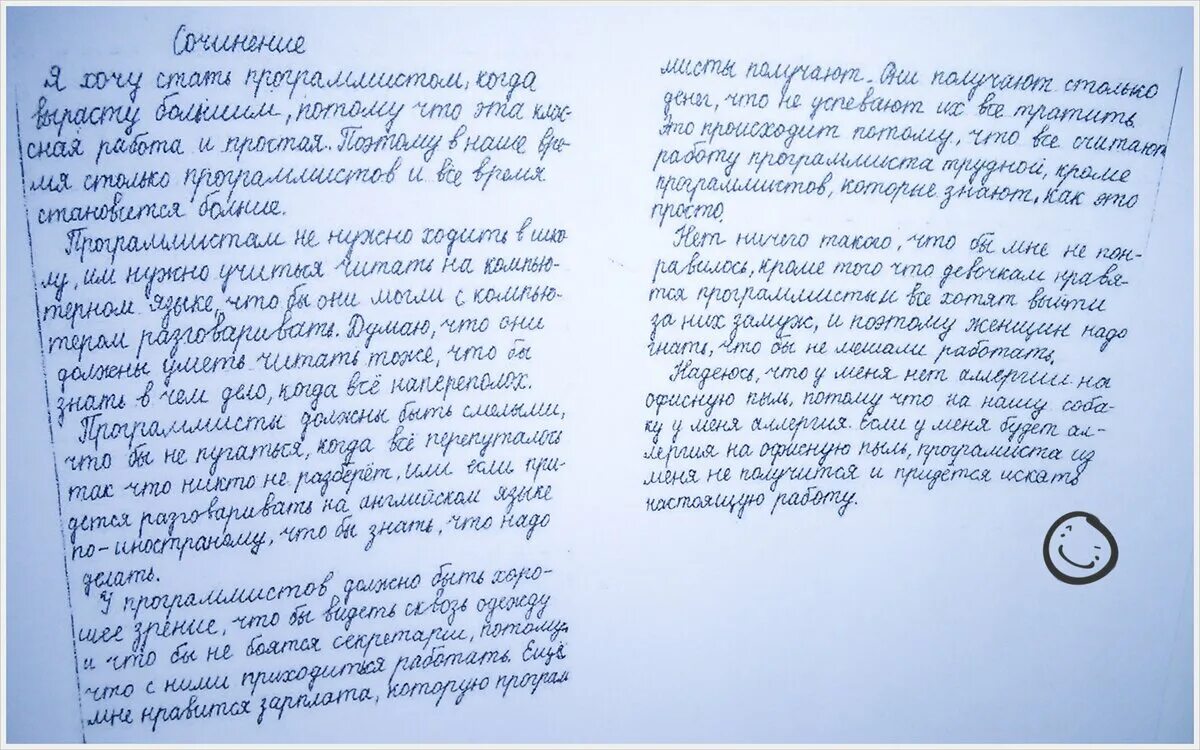 Сочинение
Я хочу стать программистом, когда
вырасту большим, потому что эта клас-
сная работа и простая. Поэтому в наше вре-
мя столько программистов и всё время
становится болшие.
Программистам не нужно ходить в шко-
лу, им нужно учиться читать на компью-
терном языке, что бы они могли с компью-
тером разговаривать. Думаю, что они
должны уметь читать тоже, что бы
знать в чем дело, когда всё напереполох.
Программисты должны быть смелыми,
что бы не пугаться, когда всё перепуталось
так что никто не разберёт, или если при-
дется разговаривать на английском языке
по-иностраному, что бы знать, что надо
делать.
У программистов должно быть хоро-
шее зрение, что бы видеть сквозь одежду
и что бы не боятся секретарш, потому,
что с ними приходиться работать. Ещё
мне нравится зарплата, которую програм
мисты получают. Они получают столько
денег, что не успевают их все тратить.
Это происходит потому, что все считают
работу программиста трудной, кроме
программистов, которые знают, как это
просто.
Нет ничего такого, что бы мне не пон-
равилось, кроме того что девочкам нравя-
тся программисты и все хотят выйти
за них замуж, и поэтому женщин надо
гнать, что бы не мешали работать.
Надеюсь, что у меня нет аллергии на
офисную пыль, потому что на нашу соба-
ку у меня аллергия. Если у меня будет ал-
лергия на офисную пыль, програмиста из
меня не получится и придётся искать
настоящую работу.